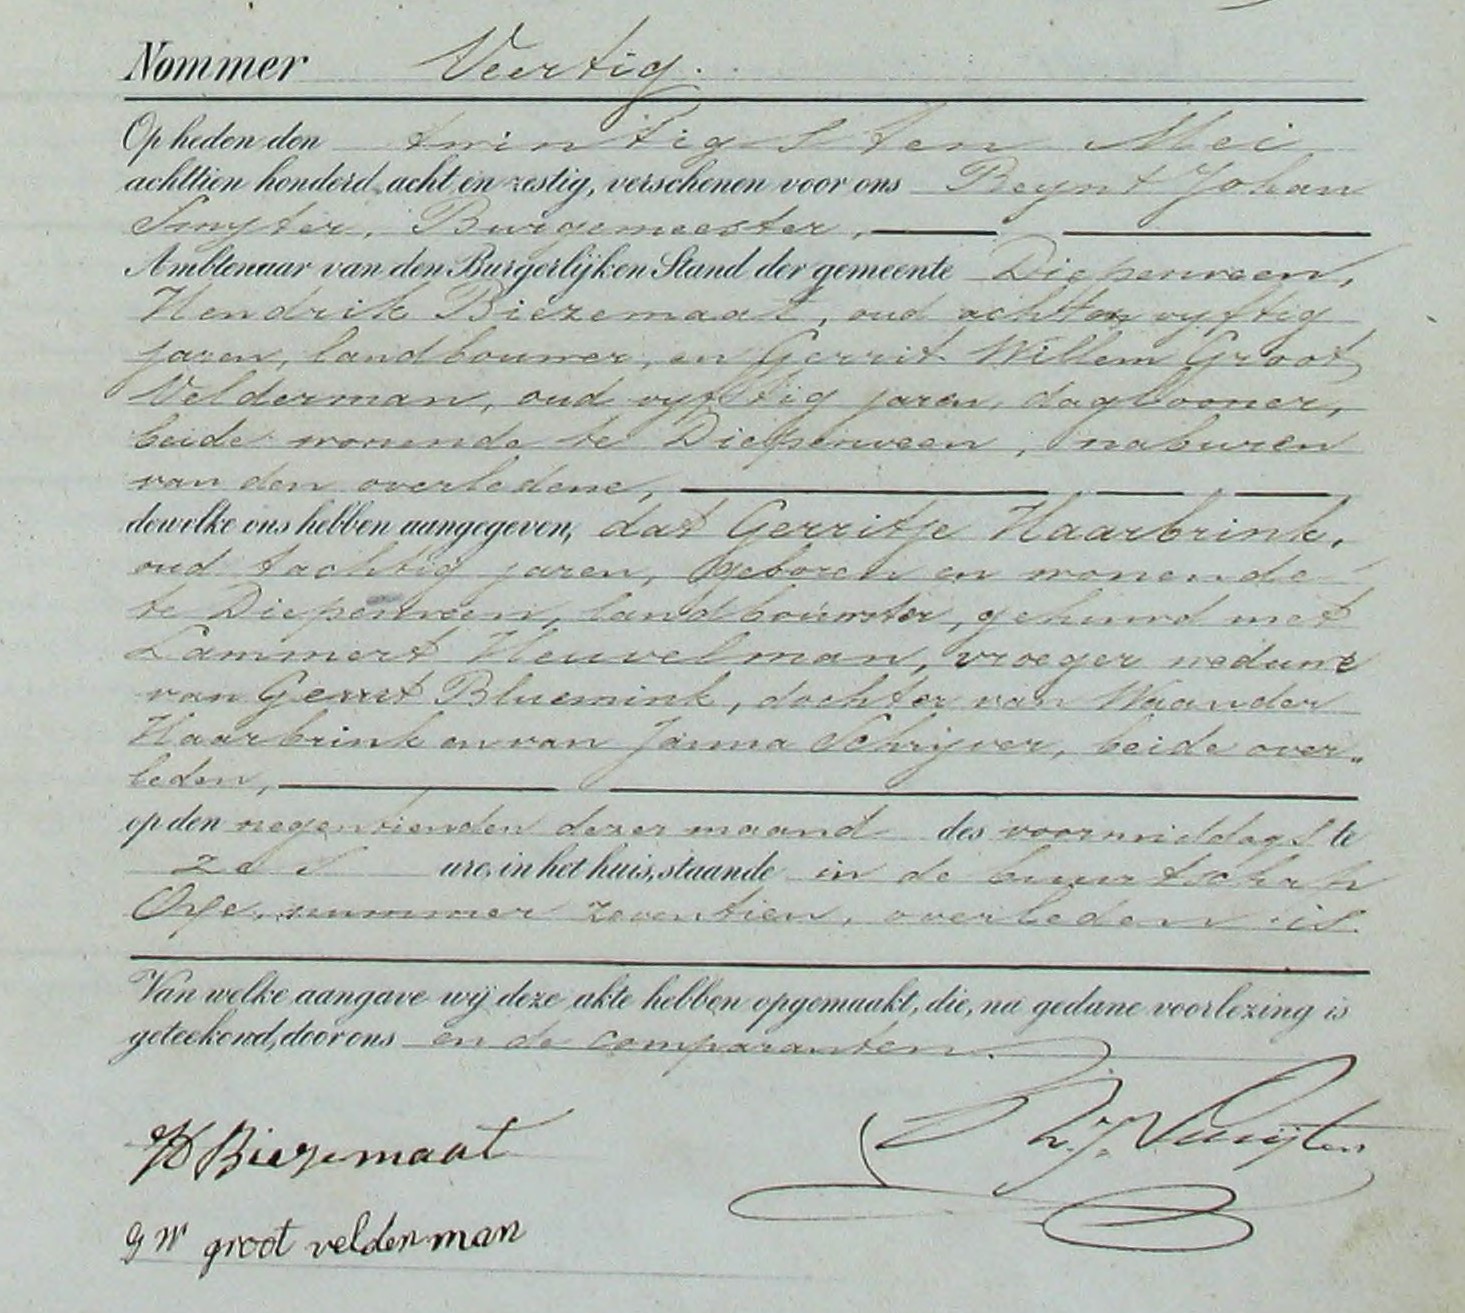 Nommer Veertig.
Op heden den twintigsten Mei
achttien honderd acht en zestig, verschenen voor ons Reynt Johan
Suyter, Burgemeester,
Ambtenaar van den Burgerlijken Stand der gemeente Diepenveen,
Hendrik Biezemaat, oud achtten vyftig
jaren, landbouwer, en Gerrit Willem Groot
Velderman, oud vyftig jaren, daglooner,
beide wonende te Diepenveen, naburen
van den overledene,
dewelke ons hebben aangegeven, dat Gerritje Haarbrink,
oud tachtig jaren, geboren en wonende
te Diepenveen, landbouwster, gehuwd met
Lammert Heuvelman, vroeger weduwe
van Gerrit Bluemink, dochter van Waander
Haarbrink en van Janna Schrijver, beide over„
leden,
op den negentienden dezer maand des voormiddags te
zes ure, in het huis, staande in de buurtschap
Oxe, nummer zeventien, overleden is.
Van welke aangave wij deze akte hebben opgemaakt, die, na gedane voorlezing is
geteekend, door ons en de comparanten.
H Biezemaat
g w groot velderman